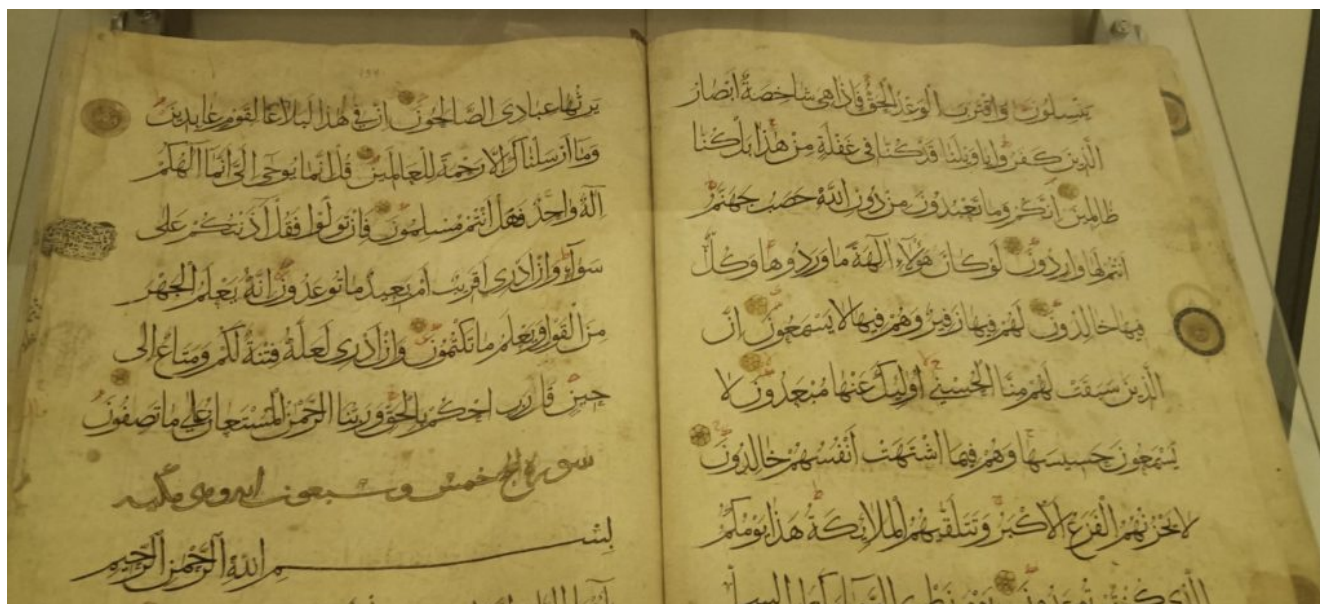 ينسلون واقترب الوعد الحق فاذا هي شاخصة ابصار
الذين كفروا يا ويلنا قد كنا في غفلة من هذا بل كنا
ظالمين انكم وما تعبدون من دون الله حصب جهنم
انتم لها واردون لو كان هؤلاء آلهة ما وردوها وكل
فيها خالدون لهم فيها زفير وهم فيها لا يسمعون ان
الذين سبقت لهم منا الحسنى اولئك عنها مبعدون لا
يسمعون حسيسها وهم فيما اشتهت انفسهم خالدون
لا يحزنهم الفزع الاكبر وتتلقيهم الملائكة هذا يومكم
الذي كنتم توعدون يوم نطوي السماء كطي السجل
يرثها عبادي الصالحون ان في هذا لبلاغا لقوم عابدين
وما ارسلناك الا رحمة للعالمين قل انما يوحى الي انما الهكم
اله واحد فهل انتم مسلمون فان تولوا فقل آذنتكم على
سواء وان ادري اقريب ام بعيد ما توعدون انه يعلم الجهر
من القول ويعلم ما تكتمون وان ادري لعله فتنة لكم ومتاع الى
حين قال رب احكم بالحق وربنا الرحمن المستعان على ما تصفون
سورة الحج خمس وسبعون اية وهي مكية
بسم الله الرحمن الرحيم